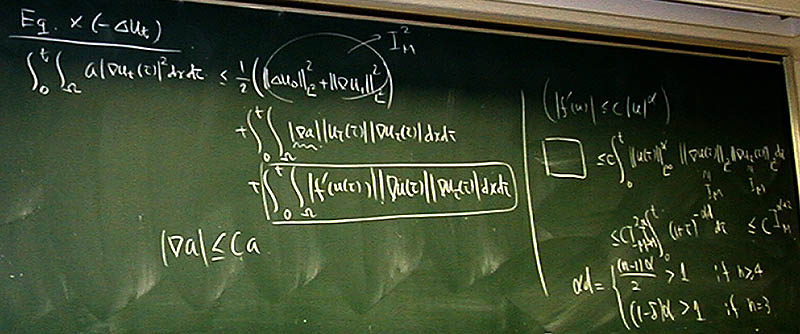 Eq. × (-Δu_t)
∫_0^t ∫_Ω a|∇u_t(τ)|^2 dxdτ ≤ 1/2 (||Δu_0||^2_{L^2} + ||∇u_1||^2_{L^2}) → I_M^2
+ ∫_0^t ∫_Ω |∇a||u_t(τ)||∇u_t(τ)| dxdτ
+ ∫_0^t ∫_Ω |f'(u(τ))||∇u(τ)||∇u_t(τ)| dxdτ
|∇a| ≤ Ca
(|f'(u)| ≤ C|u|^α)
□ ≤ C ∫_0^t ||u(τ)||^α_{L^∞} ||∇u(τ)||_{L^2} ||∇u_t(τ)||_{L^2} dτ
I_M I_M
∫_0^t (1+τ)^{-αd} dτ ≤ C I_M^{α+2}
αd = { (n-1)α/2 > 1 if n≥4
(1-δ)α > 1 if n=3